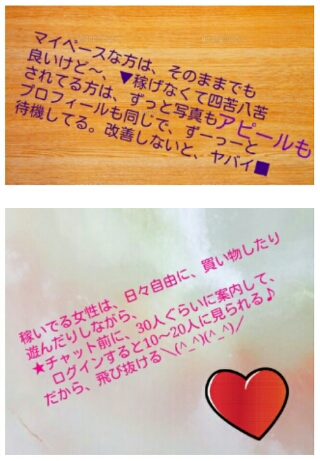 マイペースな方は、そのままでも
良いけど～、▼稼げなくて四苦八苦
されてる方は、ずっと写真もアピールも
プロフィールも同じで、ずーっーと
待機してる。改善しないと、ヤバイ■
稼いでる女性は、日々自由に、買い物したり
遊んだりしながら、
★チャット前に、30人ぐらいに案内して、
ログインすると10～20人に見られる♪
だから、飛び抜ける＼(^_^)(^_^)／